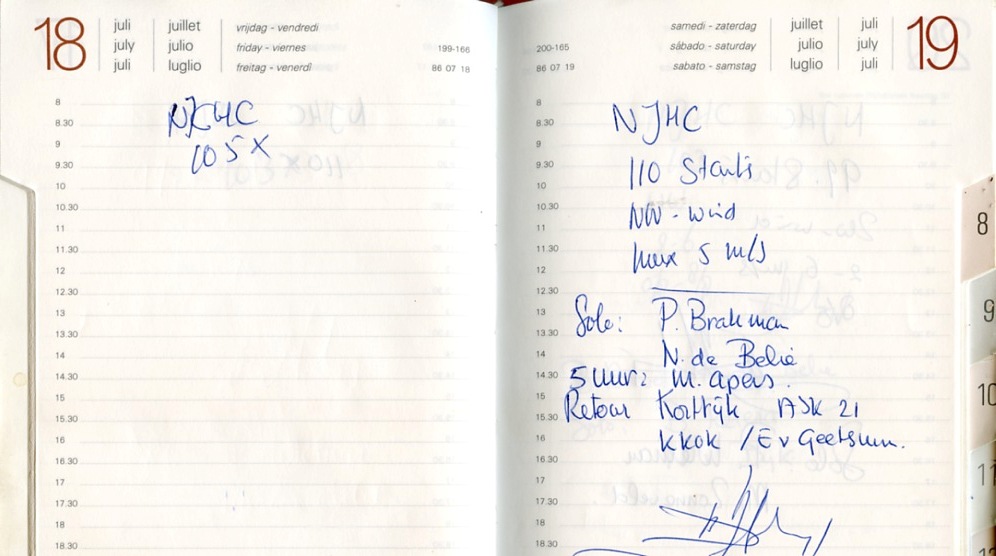 18
juli juillet vrijdag - vendredi
july julio friday - viernes 199-166
juli luglio freitag - venerdì 86 07 18
8
8.30
9
9.30
10
10.30
11
11.30
12
12.30
13
13.30
14
14.30
15
15.30
16
16.30
17
17.30
18
18.30
105 X
19
samedi - zaterdag juillet juli
200-165 sábado - saturday julio july
86 07 19 sabato - samstag luglio juli
8
8.30 NJHC
9
9.30 110 Starts
10
10.30 NW - wind
11
11.30 max 5 m/s
12
12.30
13 Solo: P. Brakman
13.30
14 N. de Belie
14.30 5 uur: M. Apers.
15 Retour Kortrijk ASK 21
15.30
16 KKOK / E v Geetsum.
16.30
17
17.30
18
18.30
8
9
10
11